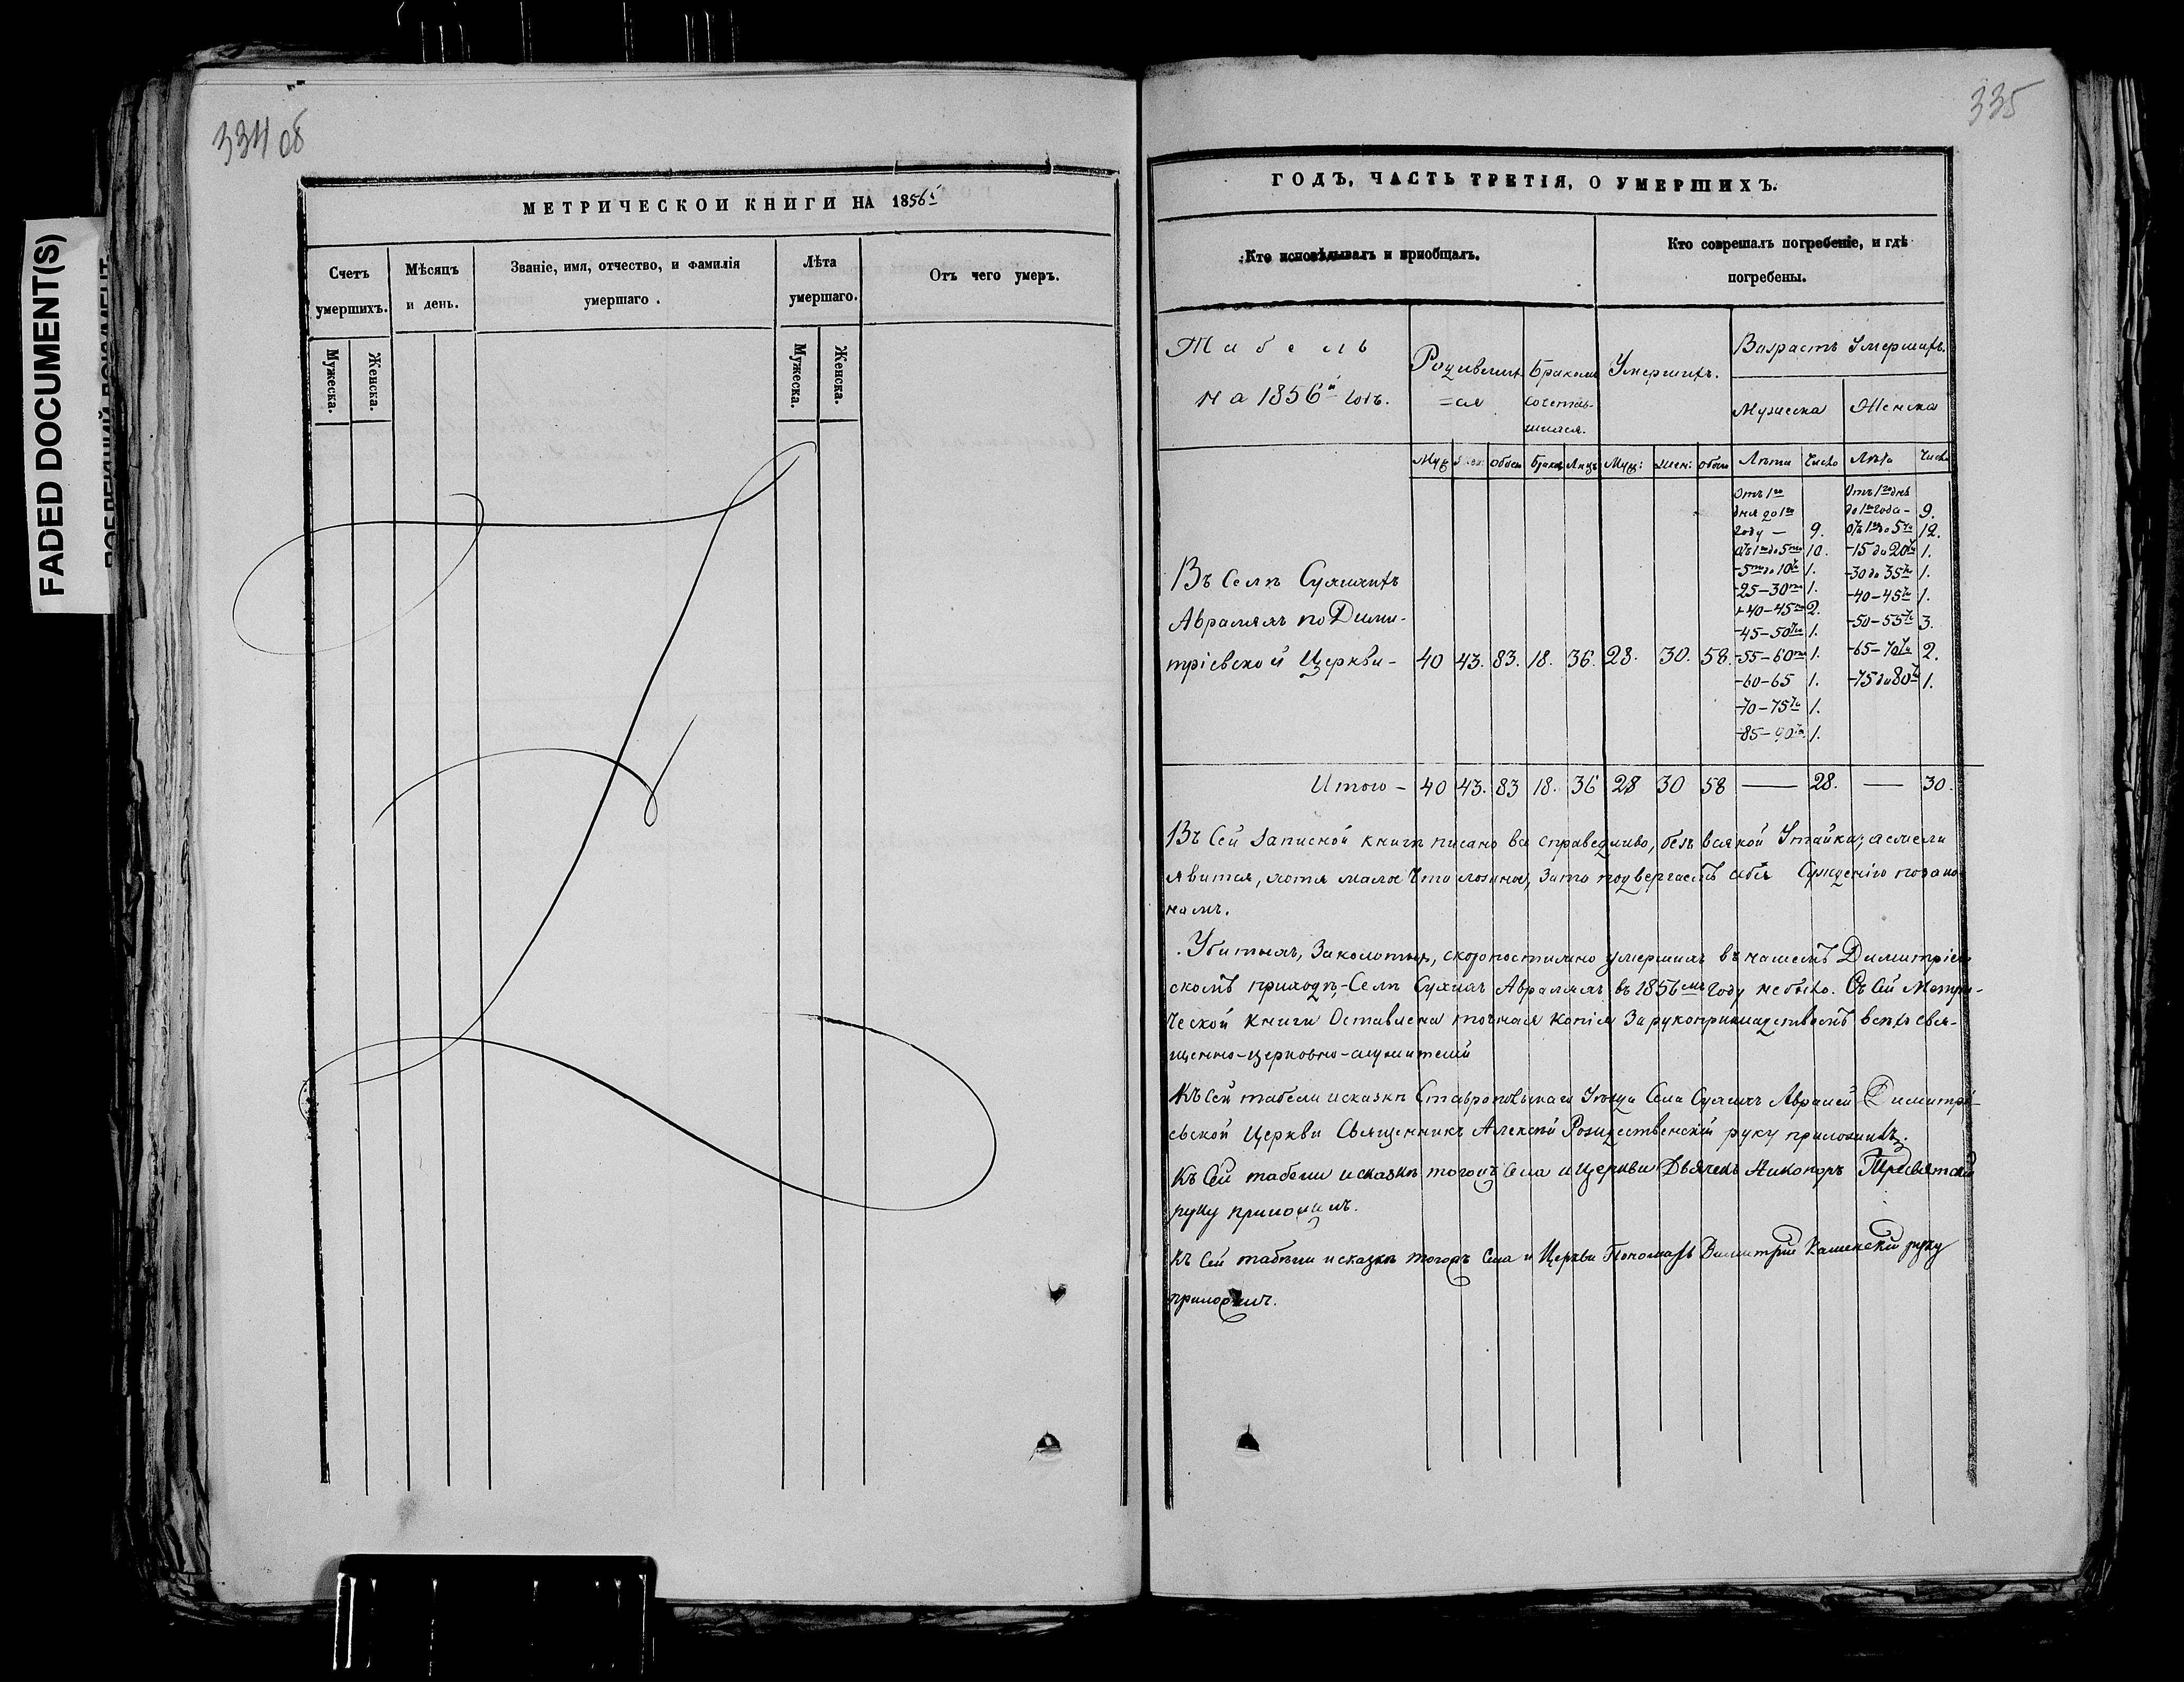 334 об
335
FADED DOCUMENT(S)
МЕТРИЧЕСКОЙ КНИГИ НА 1856й
Счетъ умершихъ.
Мѣсяцъ и день.
Званіе, имя, отчество, и фамилія умершаго.
Лѣта умершаго.
Отъ чего умеръ.
Мужеска.
Женска.
Мужеска.
Женска.
ГОДЪ, ЧАСТЬ ТРЕТІЯ, О УМЕРШИХЪ.
Кто исповѣдывалъ и пріобщалъ.
Кто совершалъ погребеніе, и гдѣ погребены.
Табель
на 1856й годъ.
Родившихся
=ся
Бракомъ
сочетав-
шихся.
Умершихъ.
Возрастъ Умершихъ.
Мужеска
Женска
Муж
Жен:
Обоего
Браковъ
Лицъ
Муж:
Жен:
Обоего
Лѣта
Число
Лѣта
Число
Въ Селѣ Сухихъ
Авраляхъ по Дими-
тріевской Церкви-
40 43. 83. 18. 36. 28. 30. 58.
Отъ 1го
дня до 1го
году — 9.
отъ 1го до 5ти 10.
-5ти до 10ти 1.
-25-30ти 1.
-40-45ти 2.
-45-50ти 1.
-55-60ти 1.
-60-65 1.
-70-75ти 1.
-85-90та 1.
Отъ 1го дня
до 1го года- 9.
отъ 1го до 5ти 12.
-15 до 20ти 1.
-30 до 35ти 1.
-40-45ти 1.
-50-55ти 3.
-65-70ти 2.
-75 до 80ти 1.
Итого - 40 43. 83 18. 36 28 30 58 — 28. — 30.
Въ сей записной книгѣ писано все справедливо, безъ всякой Утайки, а ежели
явится, хотя малое что ложное, за то подвергаемъ себя Сужденію по зако-
намъ.
Убитыхъ, Заколотыхъ, скоропостижно умершихъ въ нашемъ Димитріев-
скомъ приходѣ-Селѣ Сухихъ Авраляхъ въ 1856мъ Году не было. Съ Сей Метри-
ческой книги Оставлена точная копія За рукоприкладствомъ всѣхъ свя-
щенно-церковно-служителей
Къ Сей табели и сказкѣ Ставропольскаго Уѣзда Села Сухихъ Авралей Димитрі-
евской Церкви Священникъ Алексѣй Рождественскій руку приложилъ.
Къ Сей табели и сказкѣ тогожъ Села и Церкви Дьячекъ Никоноръ Тресвятскій
руку приложилъ.
Къ Сей табели и сказкѣ тогожъ Села и Церкви Пономарь Димитрій Каменскій руку
приложилъ.